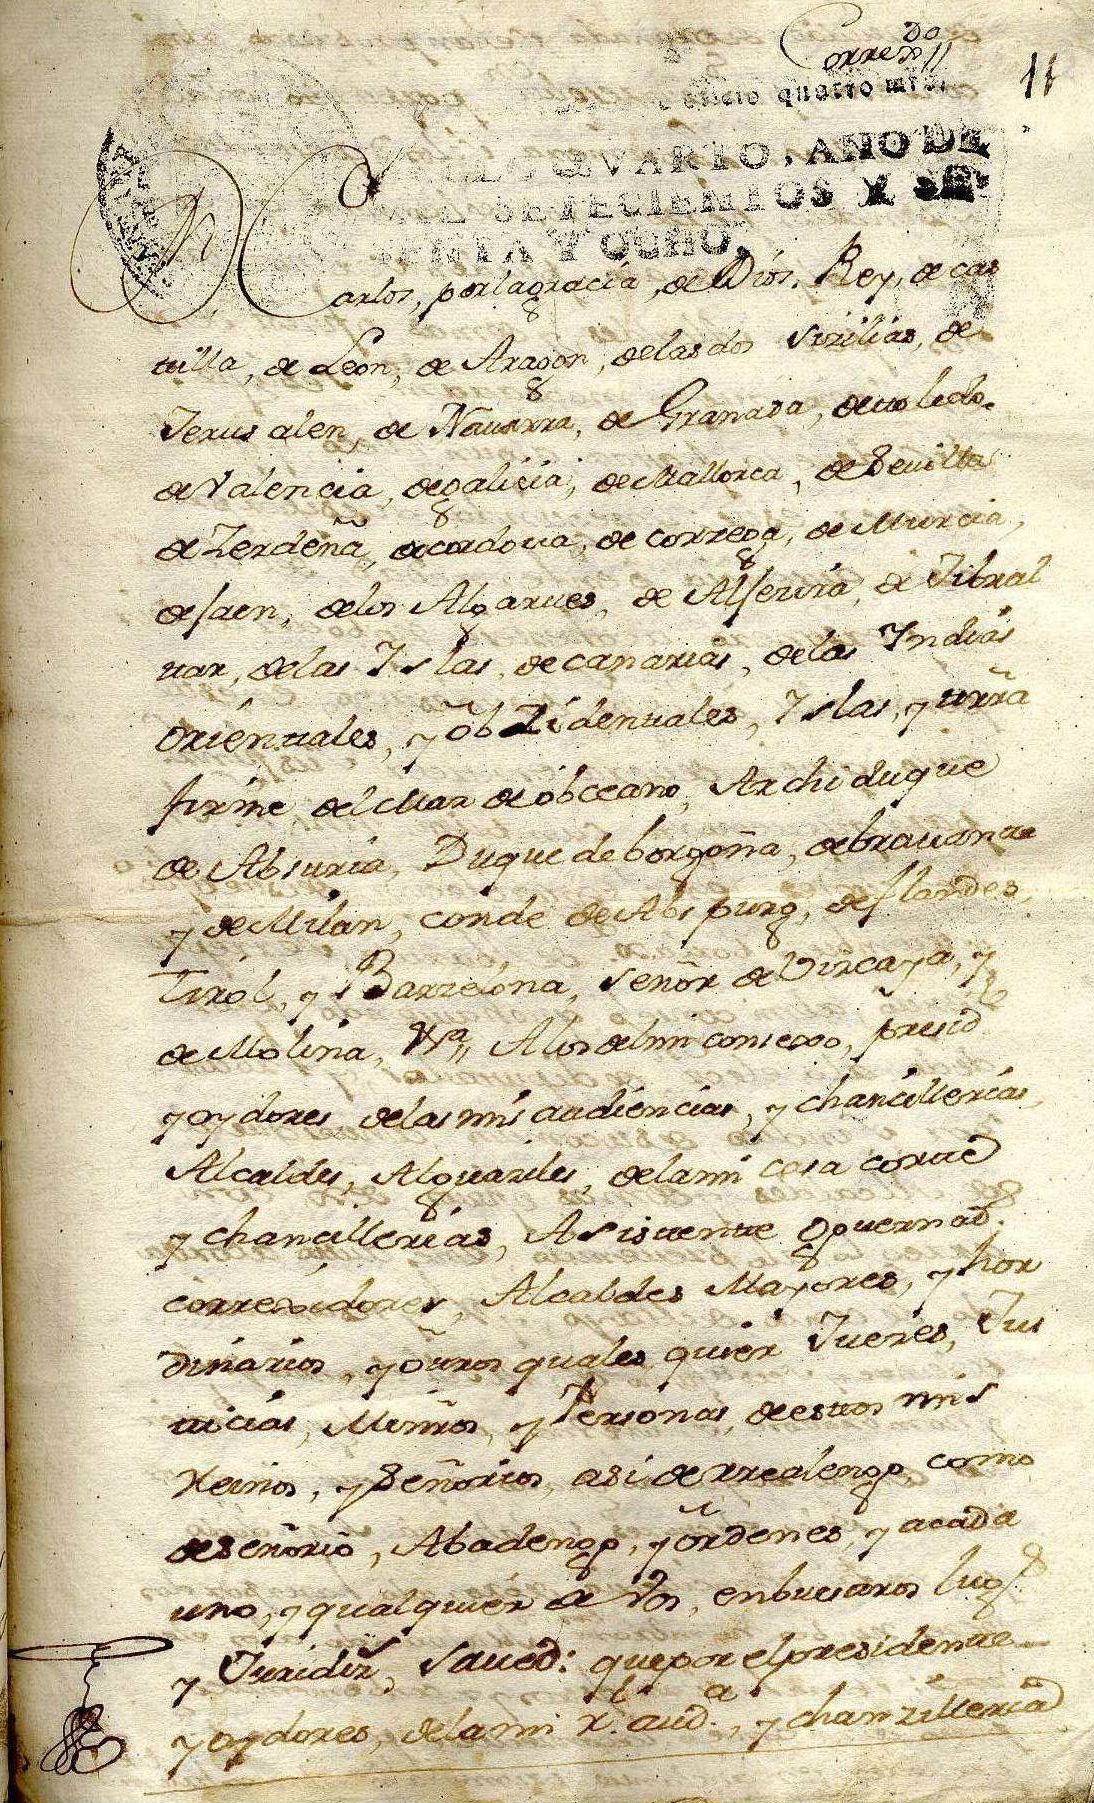 Corregdo
11
quatro mrs.
SELLO QVARTO, AÑO DE
MIL SETECIENTOS Y SE-
SENTA Y OCHO.
Dn Carlos, porlagracia, de Dios, Rey, de cas
tilla, de Leon, de Aragon, delasdos Sizilias, de
Jerusalen, de Nauarra, de Granada, detoledo.
de Valencia, degalicia, de Mallorca, de Seuilla
de Zerdeña, decordoua, de correga, de Murcia,
de Jaen, delos Algarues, de Alsezira, de Jibral
tar, delas Yslas, de canarias, delas Yndias
orientales, y obzidentales, Yslas, y trrã
firme, del Mar de obceano, Archiduque
de Absuria, Duque de borgoña, debrauante
y de Milan, conde de Abspurg, de flandes,
Tirol, y Barzelona, señor de Vizcaya, y
de Molina, &a, Alos delmi consexo, presid
y oydores delas mis audiencias, y chancillerias,
Alcaldes, Alguaziles, delami casa corte
y chancillerias, Asistente gouernad.
correxidores, Alcaldes Mayores, y hor
dinarios, y otros quales quier Juezes, Jus
ticias, Minros, y Personas, de estos mis
Reinos, y Señorios, asi de rrealengo como
deseñorio, Abadengo, y ordenes, y acada
uno, y qualquier de Vos, enbuestros lugs
y Juridizn, Saued: quepor elpresidente
y oydores, delami r. aud.a, y chanzilleria